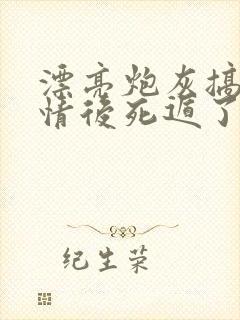 漂亮炮灰搞
情後死遁了
纪生荣